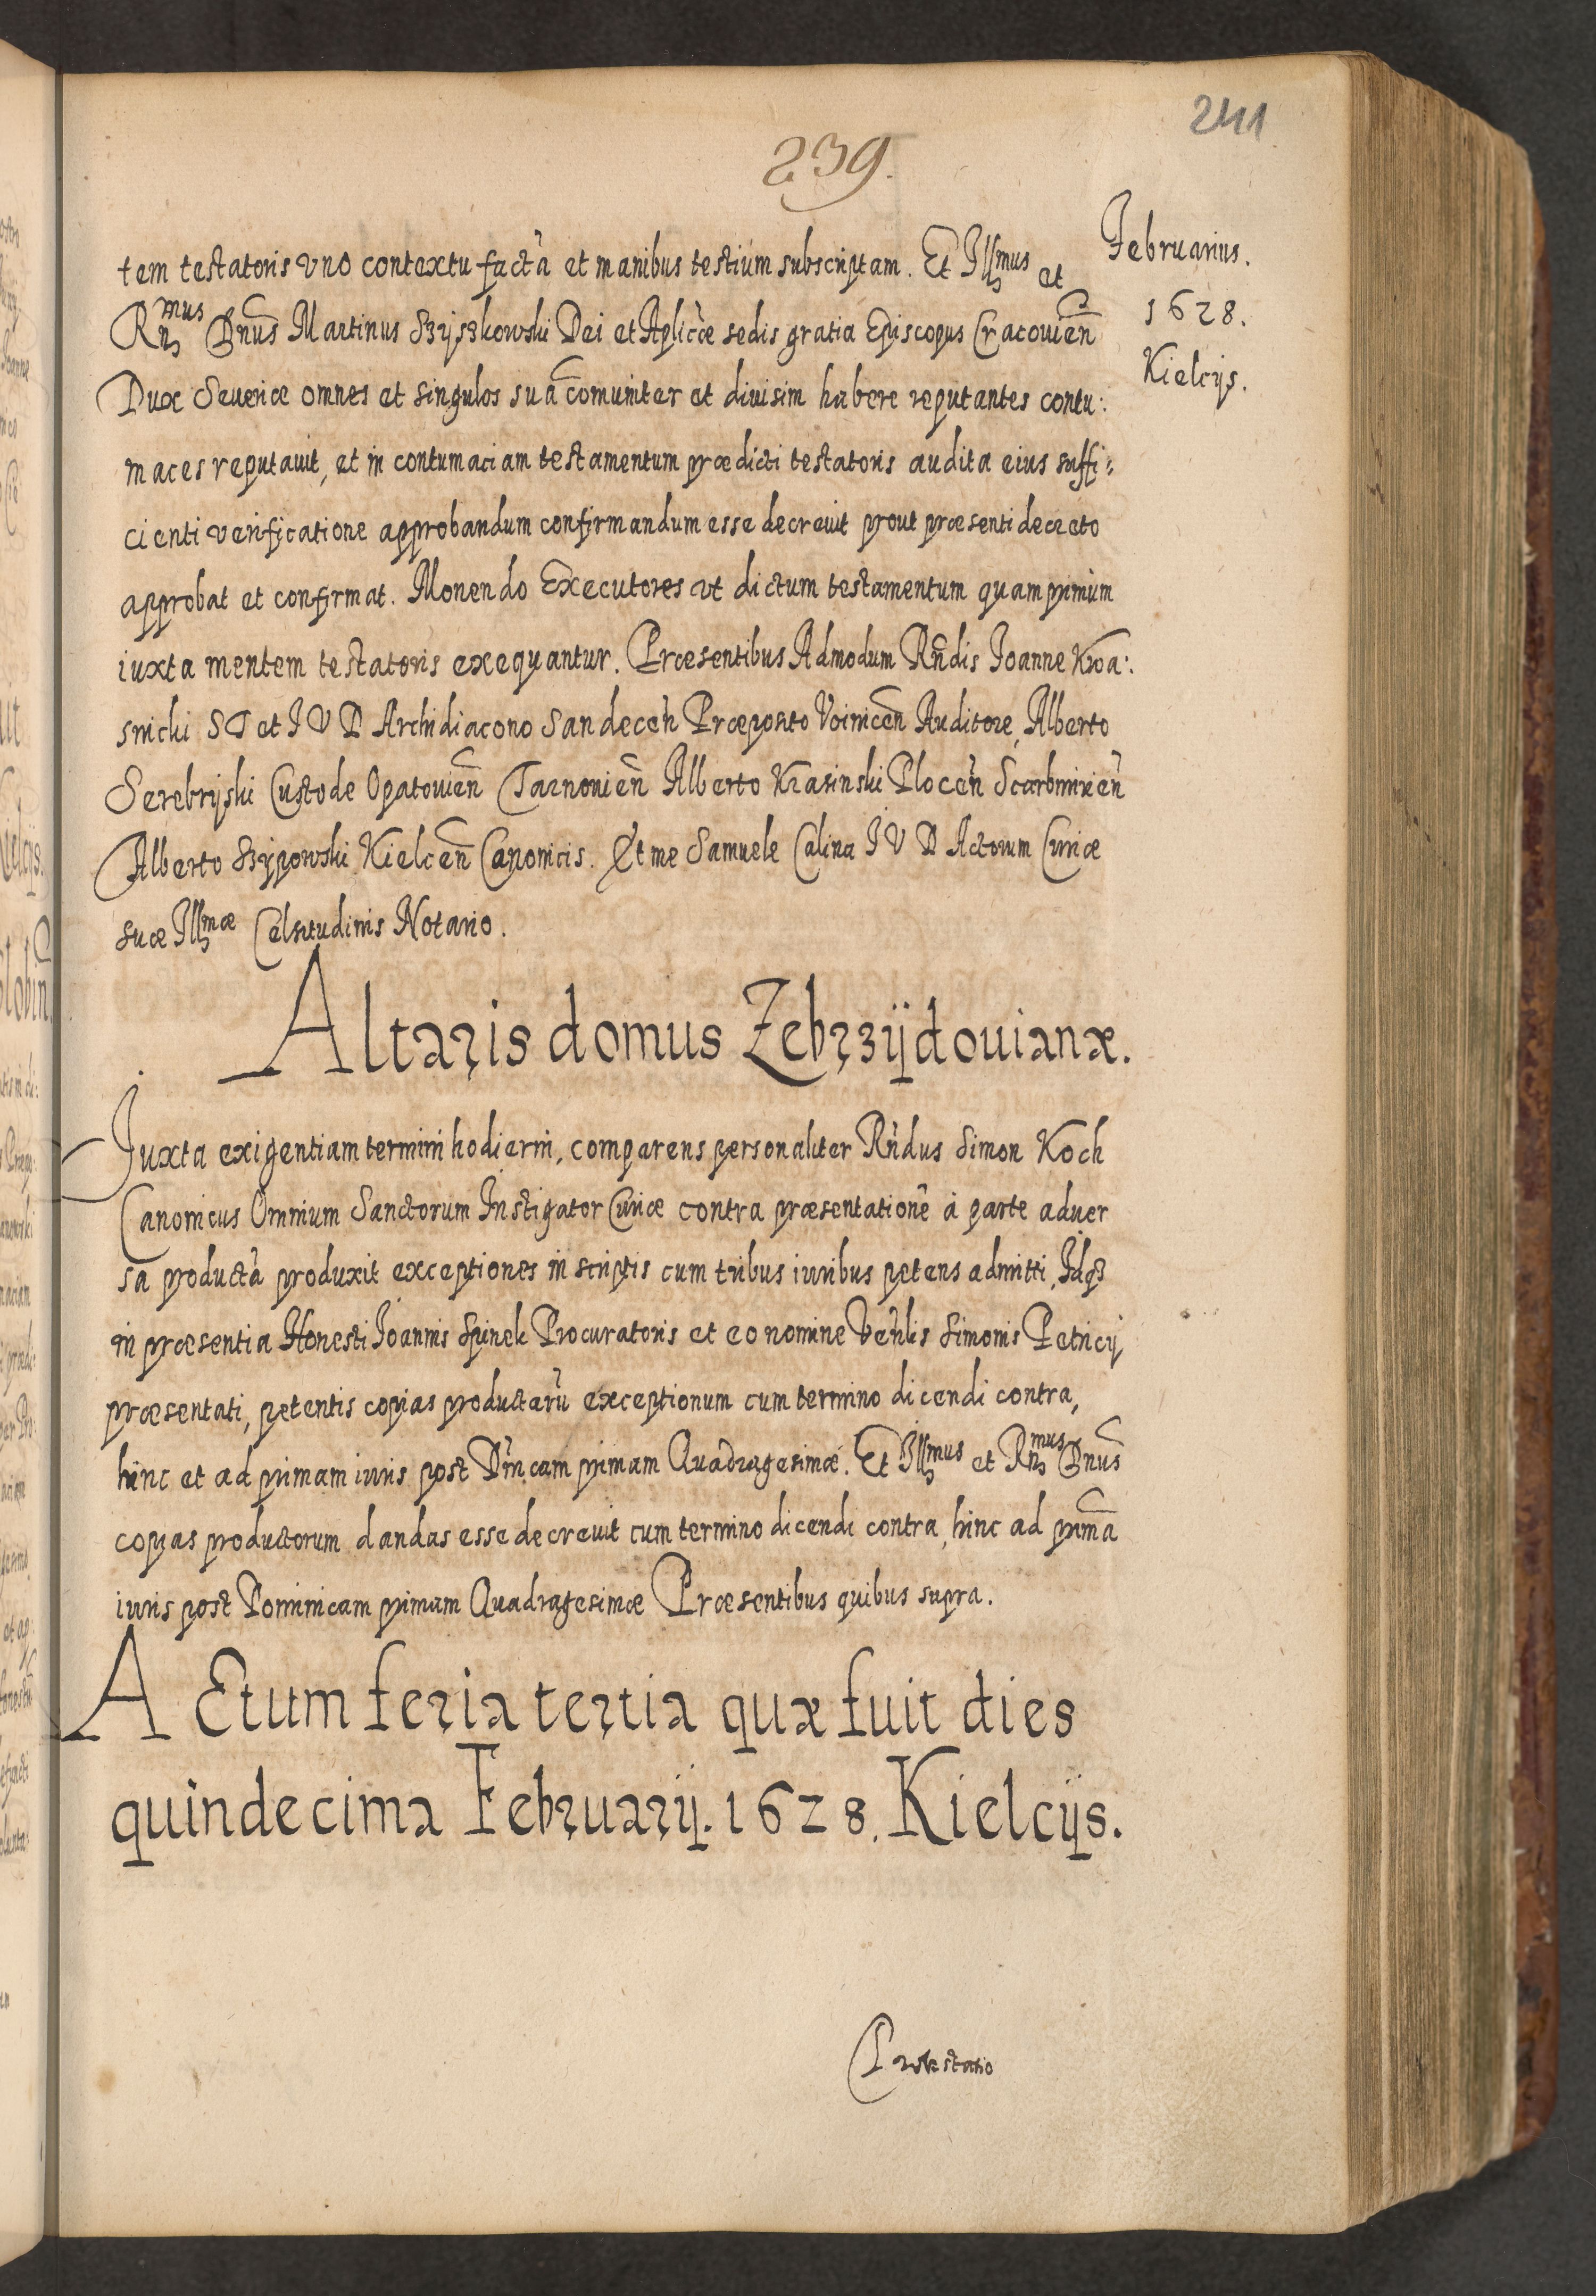 241
239.
Februarius.
1628.
Kielcijs.
tem testatoris vno contextu factã et manibus testium subscriptam. Et Illmus et
Rñmus Dnus Martinus Szyszkowski Dei et Aplicæ sedis gratia Episcopus Cracouien̄
Dux Seueriæ omnes et singulos suã comuniter et diuisim habere reputantes contu:
maces reputauit, et in contumaciam testamentum prædicti testatoris audita eius suffi:
cienti verificatione approbandum confirmandum esse decreuit prout præsenti decreto
approbat et confirmat. Monendo Executores vt dictum testamentum quamprimum
iuxta mentem testatoris exequantur. Præsentibus Admodum Rñdis Ioanne Kwa:
snicki S T et I V D Archidiacono Sandecen̄ Præposito Voinicen̄ Auditore, Alberto
Serebryski Custode Opatouien̄ Tarnouien̄ Alberto Krasinski Plocen̄ Scarbimirien̄
Alberto Szypowski Kielcen̄ Canonicis. Et me Samuele Calina I V D Actorum Curiæ
suæ Illmæ Celsitudinis Notario.
Altaris domus Zebrzijdouianæ.
Iuxta exigentiam termini hodierni, comparens personaliter Rñdus Simon Koch
Canonicus Omnium Sanctorum Instigator Curiæ contra præsentationẽ à parte aduer
sa productã produxit exceptiones in scriptis cum tribus iuribus petens admitti, Idq3
in præsentia Honesti Ioannis Spinek Procuratoris et eo nomine Veñlis Simonis Petricij
præsentati, petentis copias productarũ exceptionum cum termino dicendi contra,
hinc et ad primam iuris post Dñicam primam Quadragesimæ. Et Illmus et Rñmus Dnus
copias productorum dandas esse decreuit cum termino dicendi contra, hinc ad primã
iuris post Dominicam primam Quadragesimæ Præsentibus quibus supra.
ACtum feria tertia quæ fuit dies
quindecima Februarij. 1628. Kielcijs.
Protestatio